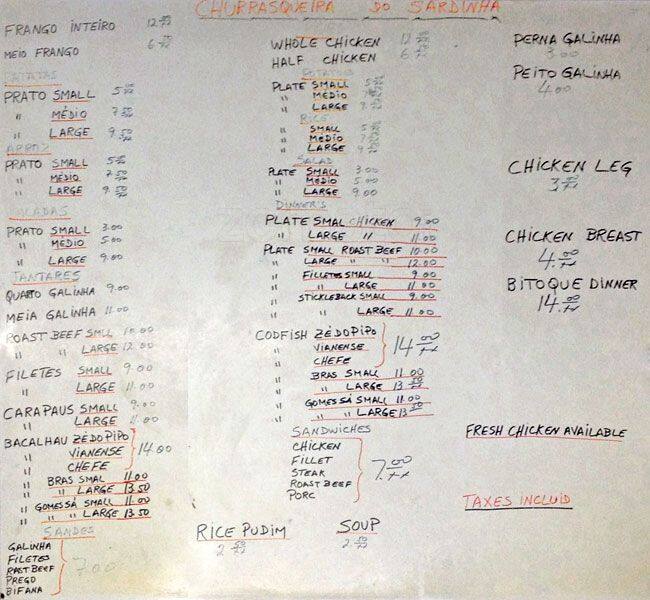 CHURRASQUEIRA DO SARDINHA
FRANGO INTEIRO 12.
MEIO FRANGO 6.
BATATAS
PRATO SMALL 5.
" MÉDIO 7.50
" LARGE 9.50
ARROZ
PRATO SMALL 5.
" MÉDIO 7.50
" LARGE 9.50
SALADAS
PRATO SMALL 3.00
" MÉDIO 5.00
" LARGE 9.00
JANTARES
QUARTO GALINHA 9.00
MEIA GALINHA 11.00
ROAST BEEF SMLL 10.00
" " LARGE 12.00
FILETES SMALL 9.00
" LARGE 11.00
CARAPAUS SMALL 9.00
" LARGE 11.00
BACALHAU ZÉDOPIPO
" VIANENSE 14.00
" CHEFE
" BRAS SMAL 11.00
" " LARGE 13.50
" GOMESSÁ SMALL 11.00
" " LARGE 13.50
SANDES
GALINHA
FILETES
RAST BEEF 7.00
PREGO
BIFANA
WHOLE CHICKEN 12
HALF CHICKEN 6
POTATOES
PLATE SMALL 5
" MÉDIO 7
" LARGE 9
RICE
SMALL 5
" MÉDIO 7
" LARGE 9
SALAD
PLATE SMALL 3.00
" MÉDIO 5.00
" LARGE 9.00
DINNER'S
PLATE SMAL CHICKEN 9.00
" LARGE " 11.00
PLATE SMALL ROAST BEEF 10.00
" LARGE " " 12.00
" FILLETES SMALL 9.00
" " LARGE 11.00
" STICKLEBACK SMALL 9.00
" " LARGE 11.00
CODFISH ZÉDOPIPO
" VIANENSE 14.00
" CHEFE
" BRAS SMALL 11.00
" " LARGE 13.50
" GOMESSÁ SMALL 11.00
" " " LARGE 13.50
SANDWICHES
CHICKEN
FILLET
STEAK 7.00
ROAST BEEF
PORC
RICE PUDIM
2.50
SOUP
2.50
PERNA GALINHA
3.00
PEITO GALINHA
4.00
CHICKEN LEG
3.
CHICKEN BREAST
4.00
BITOQUE DINNER
14.00
FRESH CHICKEN AVAILABLE
TAXES INCLUID